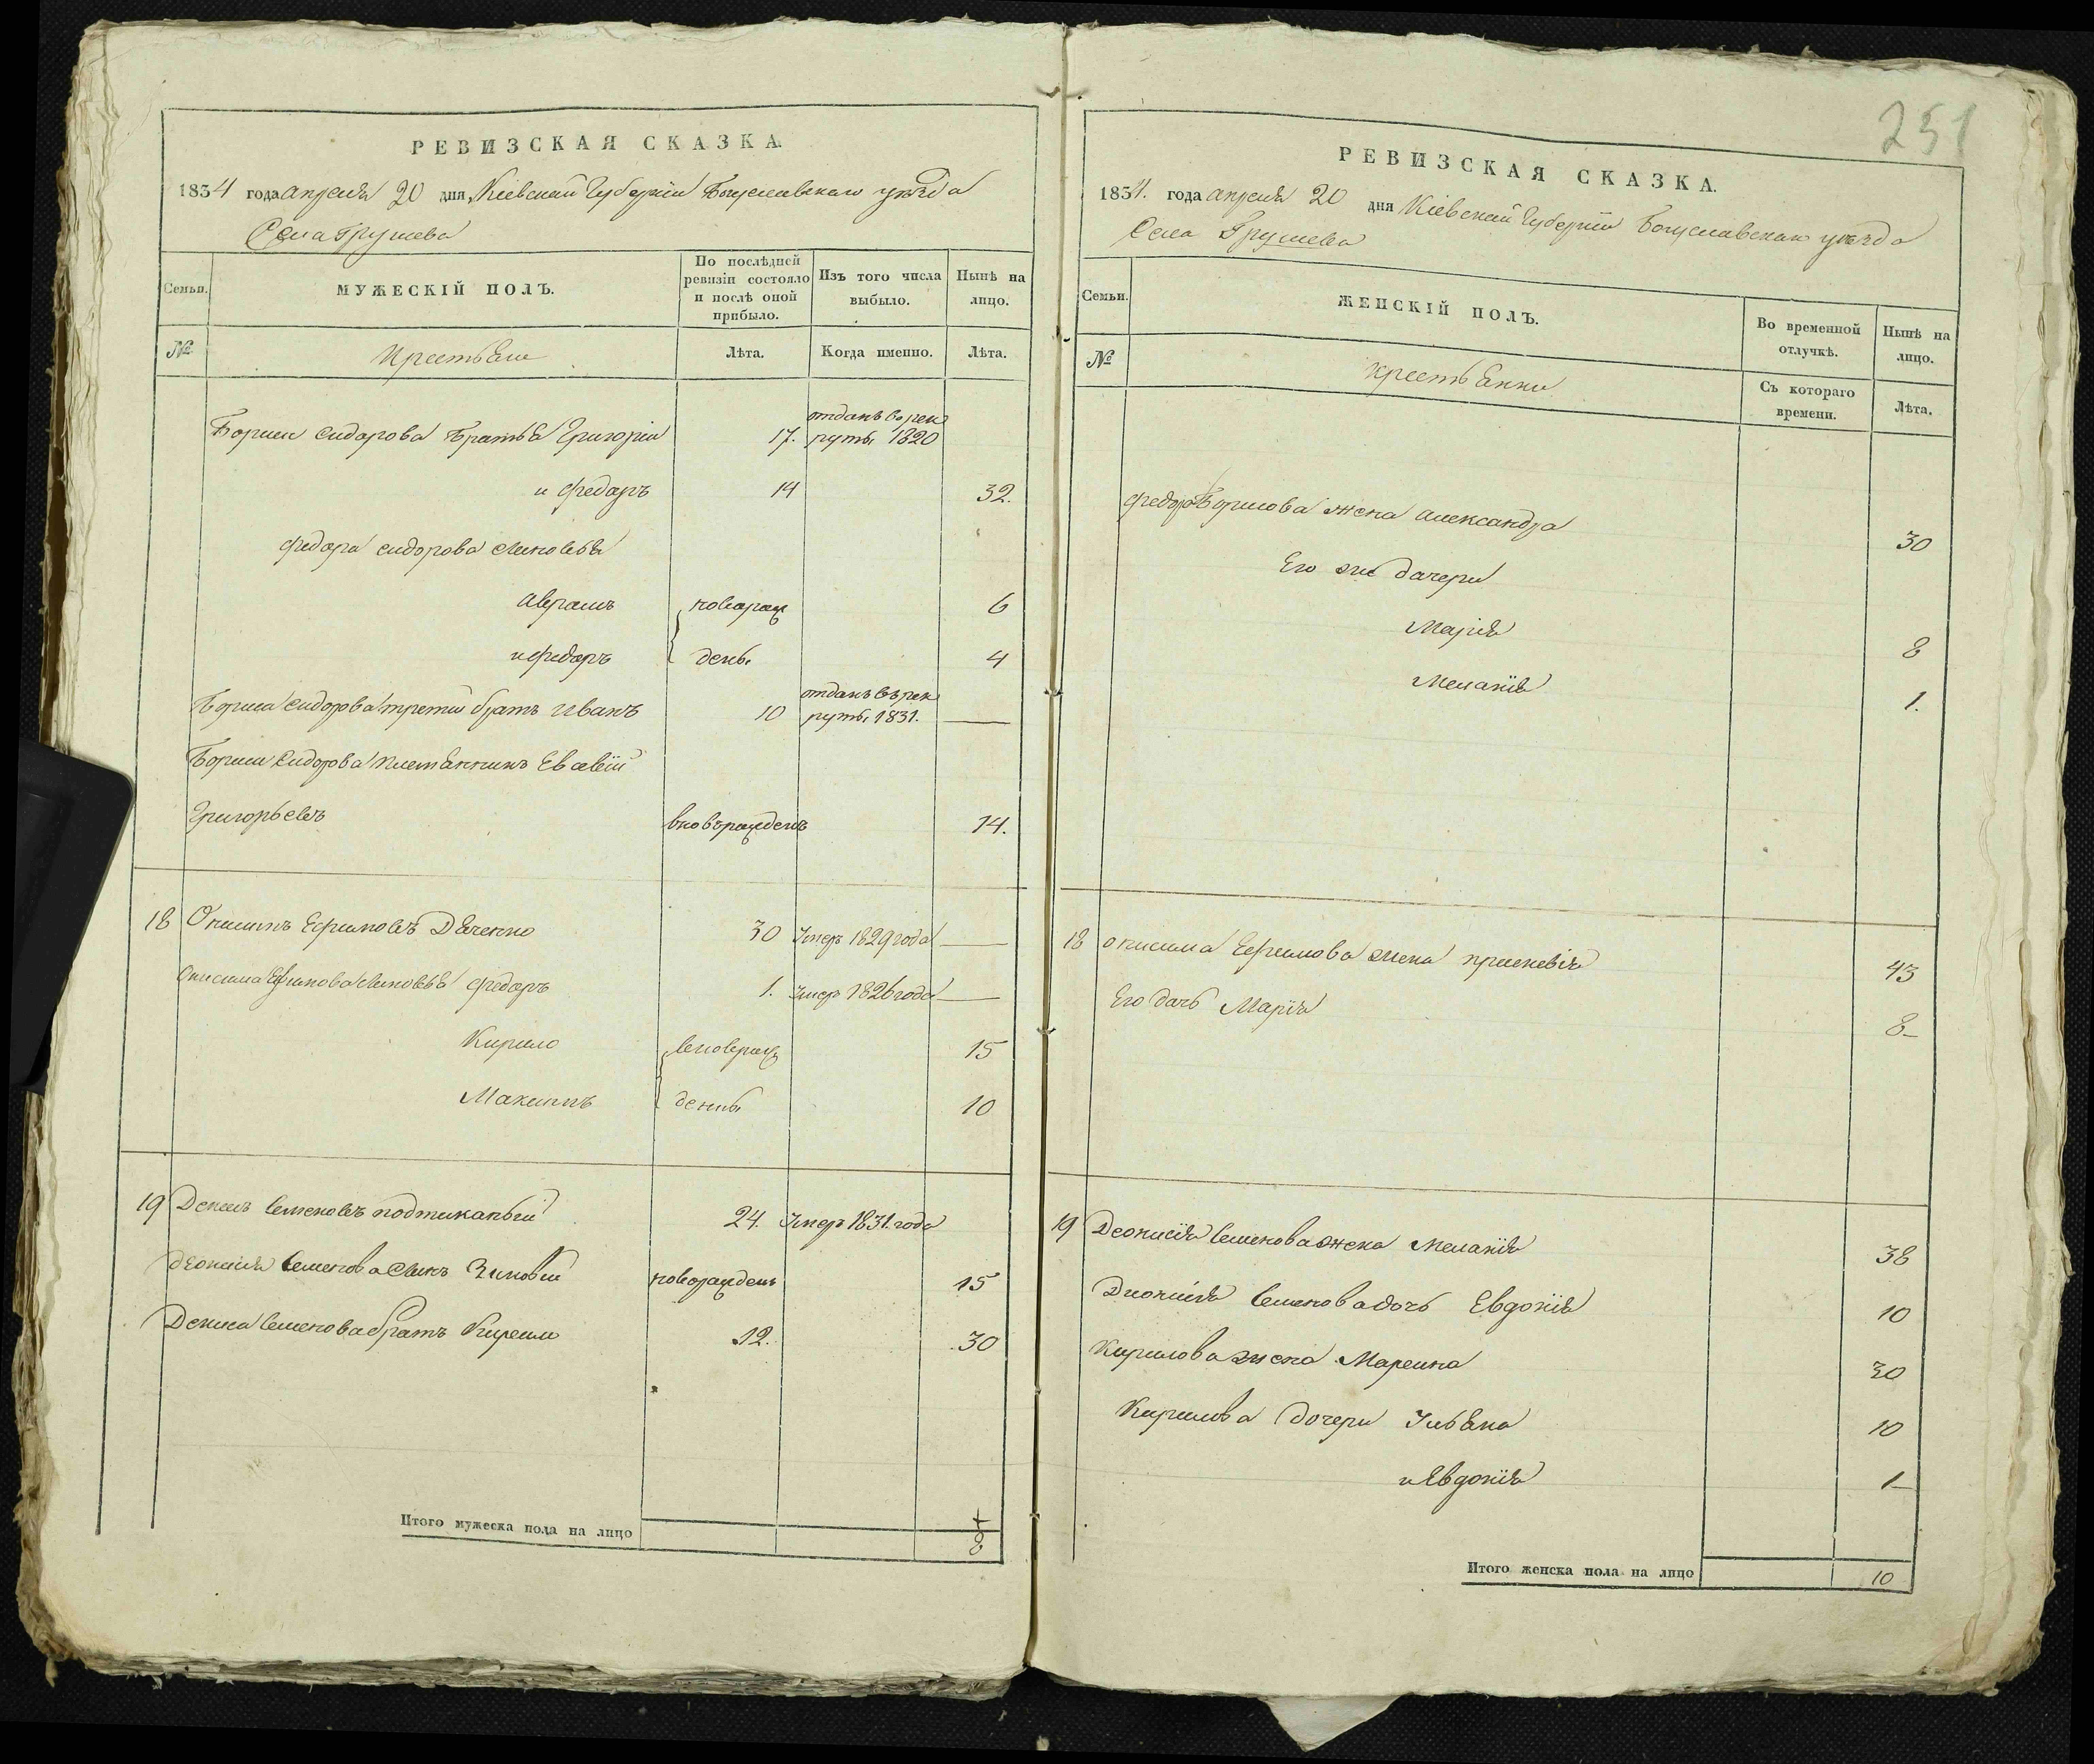 РЕВИЗСКАЯ СКАЗКА.
1834 года апреля 20 дня Кіевской Губерніи Богуславскаго уезда
Села Грушева
Семьи. МУЖЕСКІЙ ПОЛЪ. По послѣдней ревизіи состояло и послѣ оной прибыло. Изъ того числа выбыло. Нынѣ на лицо.
№ Крестьяне Лѣта. Когда именно. Лѣта.
Бориса Сидорова Братья Григорій 17. отданъ в рек
руты 1820
и Федоръ 14 32.
Федора Сидорова Сыновья
Аврамъ новорож 6
и Федоръ дены 4
Бориса Сидорова третій братъ Иванъ 10 отданъ в рек
руты 1831.
Бориса Сидорова племянникъ Евсевій
Григорьевъ вновърожденъ 14.
18 Онисимъ Ефимовъ Дяченко 30 Умеръ 1829 года
Онисима Ефимова Сыновья Федоръ 1. Умер 1826 года
Кирило вноврож 15
Максимъ дены 10
19 Денисъ Семеновъ подтыканый 24. Умеръ 1831. года
Деонисія Семенова Сынъ Зиновій новорожденъ 15
Дениса Семенова братъ Кирило 12. 30
Итого мужеска пола на лицо 8
251
РЕВИЗСКАЯ СКАЗКА.
1834. года апреля 20 дня Кіевской Губерніи Богуславскаго уезда
Села Грушева
Семьи. ЖЕНСКІЙ ПОЛЪ. Во временной отлучкѣ. Нынѣ на лицо.
№ Крестьянки Съ котораго времени. Лѣта.
Федора Борисова жена Александра 30
Его же дочери
Марія 8
Меланія 1.
18 Онисима Ефимова жена Прискевія 43
Его дочь Марія 8
19 Деонисія Семенова жена Меланія 38
Дионисія Семенова дочь Евдокія 10
Кирилова жена Марына 30
Кирилова дочери Ульяна 10
и Евдокія 1
Итого женска пола на лицо 10